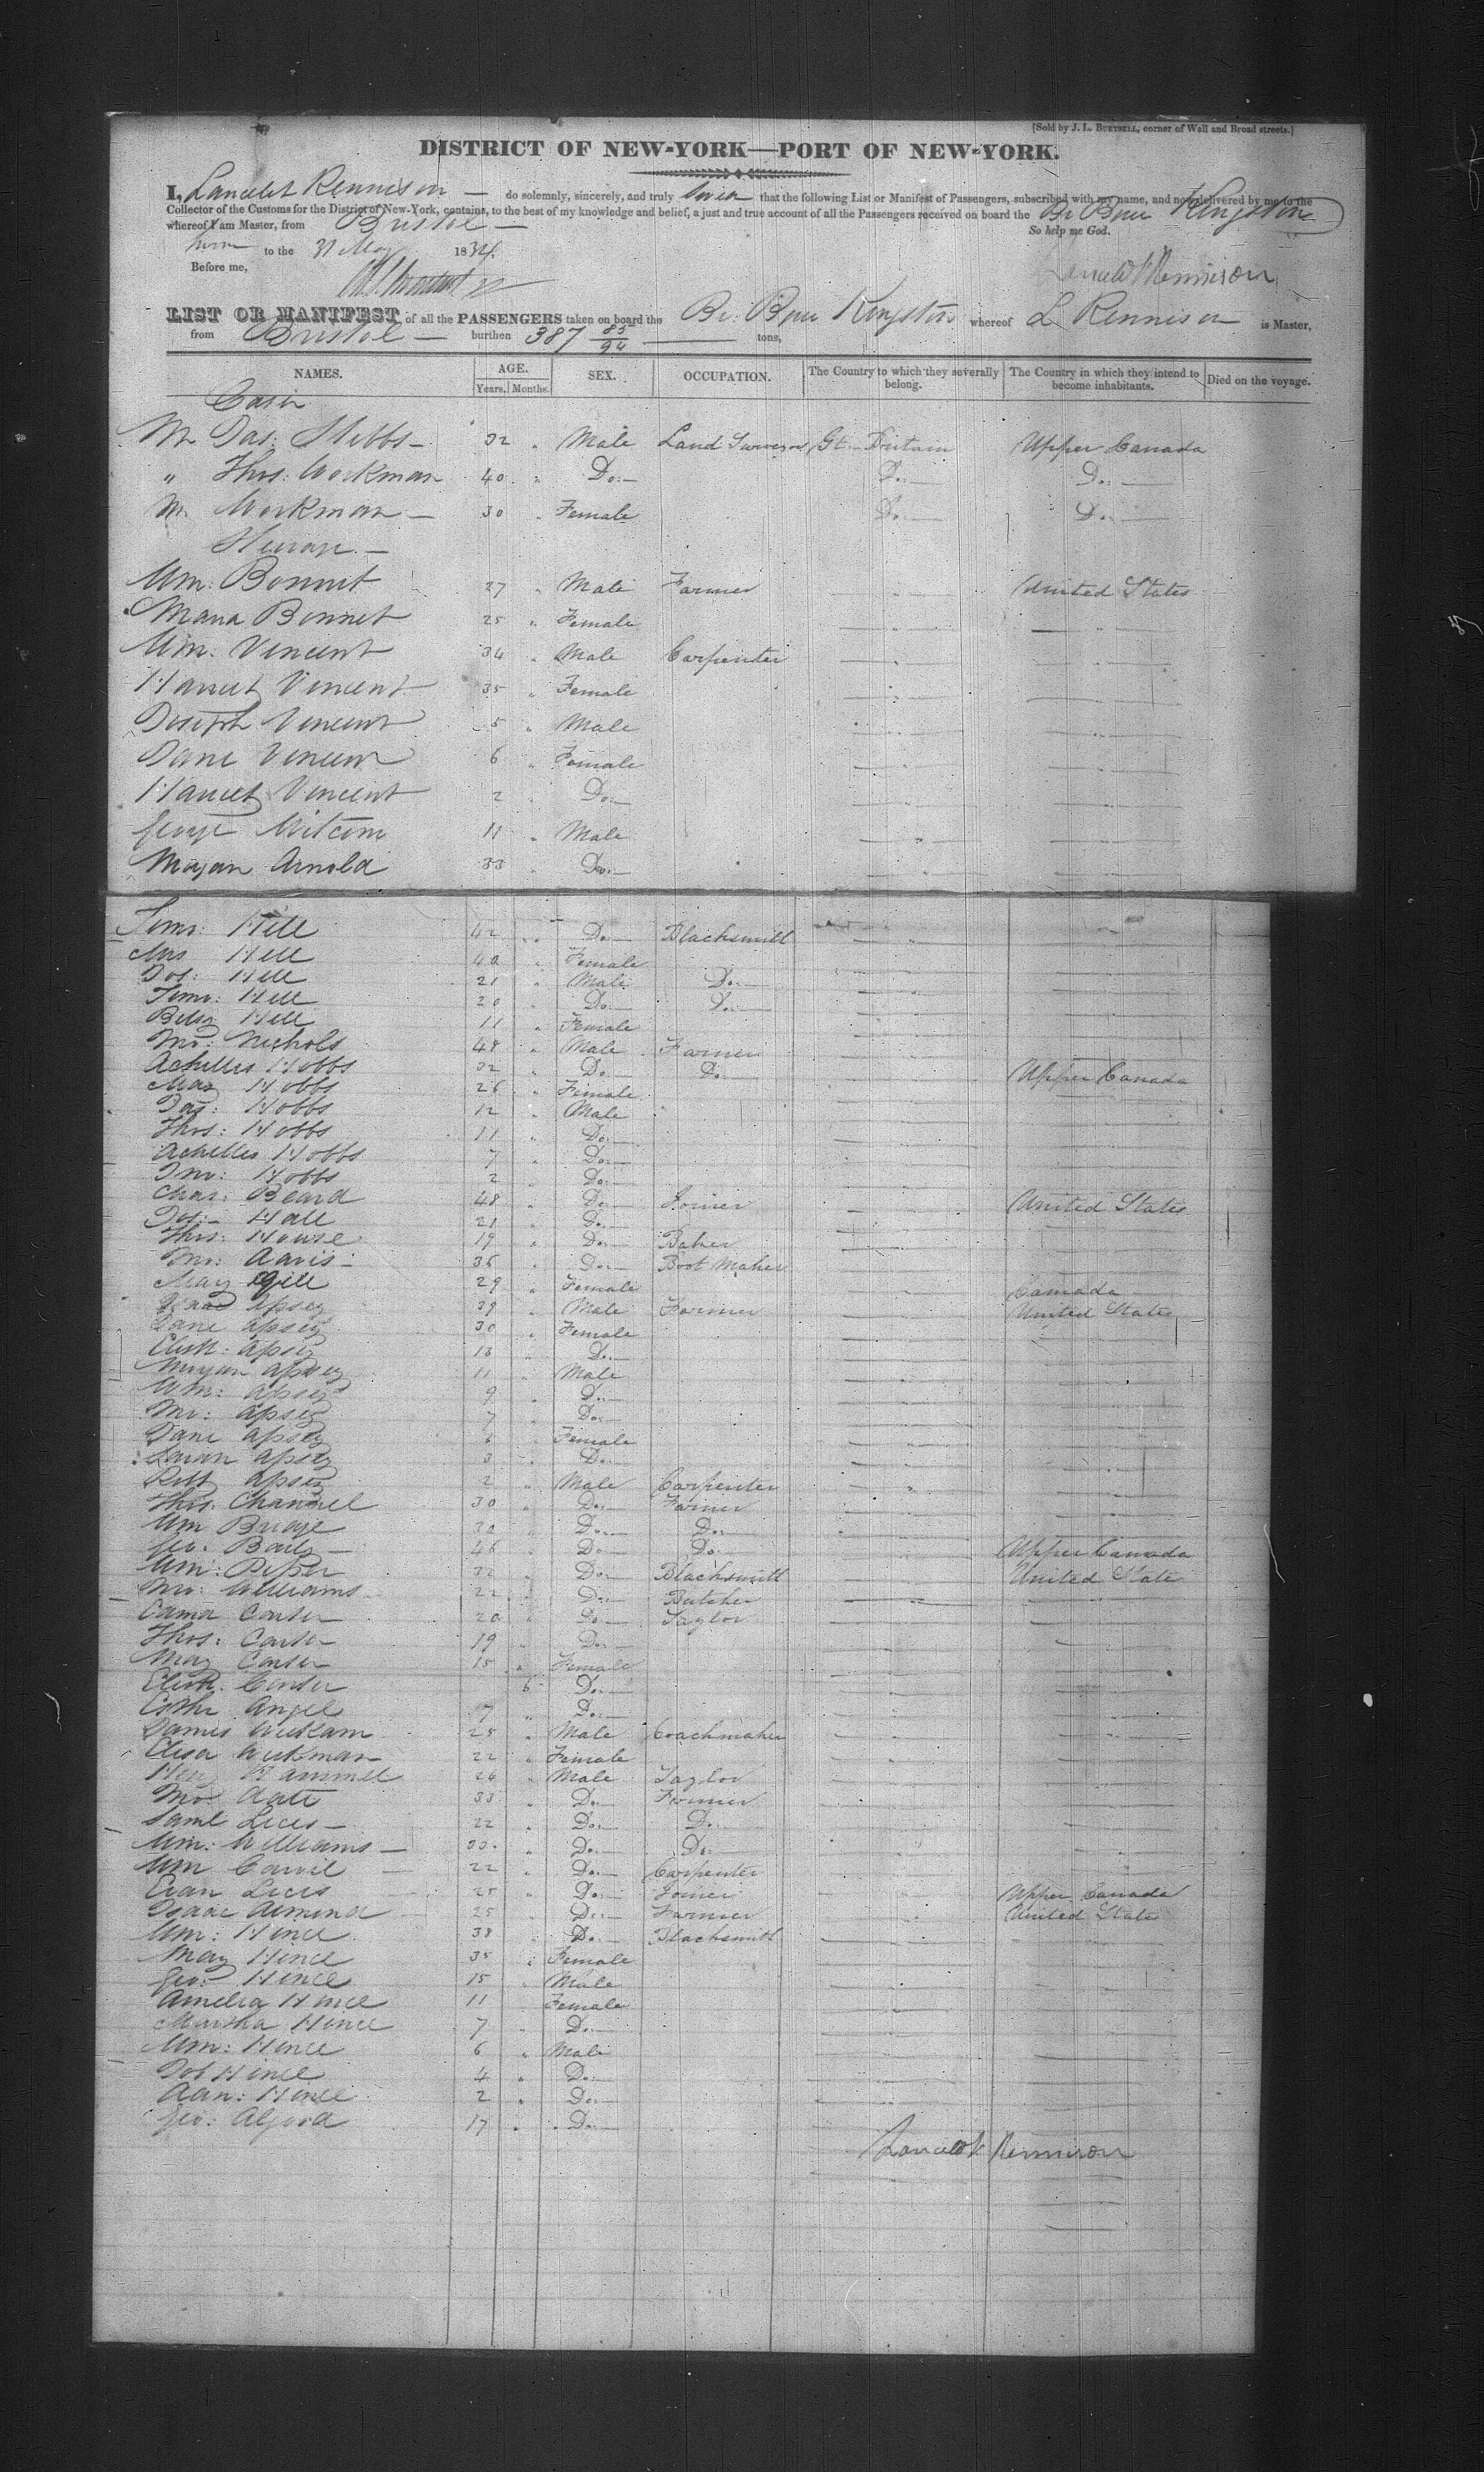 [Sold by J. L. BUETSELL, corner of Wall and Broad streets.]
DISTRICT OF NEW-YORK—PORT OF NEW-YORK.
I, Lancelot Rennison — do solemnly, sincerely, and truly swear that the following List or Manifest of Passengers, subscribed with my name, and now delivered by me to the
Collector of the Customs for the District of New-York, contains, to the best of my knowledge and belief, a just and true account of all the Passengers received on board the Br Barque Kingston
whereof I am Master, from Bristol —
So help me God.
Sworn to the 31 May 1834.
Before me,
Lancelot Rennison
LIST OR MANIFEST of all the PASSENGERS taken on board the Br: Barque Kingston whereof L Rennison is Master,
from Bristol — burthen 387 85/94 tons,
NAMES. AGE. SEX. OCCUPATION. The Country to which they severally belong. The Country in which they intend to become inhabitants. Died on the voyage.
Years. Months.
Cabin
Mr Jas: Stibbs — 32 " Male Land Surveyor Gt. Britain Upper Canada
" Thos: Workman 40 " Do. — Do. — Do. —
Mrs Workman — 30 " Female Do. — Do. —
Steerage —
Wm: Bonnet 27 " Male Farmer United States
Maria Bonnet 25 " Female
Wm. Vincent 34 " Male Carpenter
Harriet Vincent 35 " Female
Joseph Vincent 5 " Male
Jane Vincent 6 " Female
Harriet Vincent 2 " Do. —
George Mitcom 11 " Male
Morgan Arnold 33 " Do. —
Hill 42 " Do. — Blacksmith
Mrs Hill 40 " Female
Jos: Hill 21 " Male Do. —
Hill 20 " Do. — Do. —
Betsy Hill 11 " Female
Jno: Nichols 48 " Male Farmer
Achilles Hobbs 32 " Do. — Do. Upper Canada
Mary Hobbs 26 " Female
Jas: Hobbs 12 " Male
Thos: Hobbs 11 " Do. —
Achilles Hobbs 7 " Do. —
Jno: Hobbs 2 " Do. —
Chas: Beard 48 " Do. — Joiner United States
Jos: Hall 21 " Do. —
Thos: House 19 " Do. — Baker
Jno: Davis — 36 " Do. — Boot Maker
Mary Gill 29 " Female Canada
Isaac Apsey 39 " Male Farmer United States
Jane Apsey 30 " Female
Elizth: Apsey 13 " Do. —
Morgan Apsey 11 " Male
Wm: Apsey 9 " Do. —
Jno: Apsey 7 " Do. —
Jane Apsey 6 " Female
Sarah Apsey 3 " Do. —
Robt Apsey 2 " Male Carpenter
Thos. Channel 30 " Do. — Farmer
Wm Bridge 30 " Do. — Do. —
Geo. Baily — 46 " Do — Do. Upper Canada
Wm: Piper 32 " Do — Blacksmith United States
Jno: Williams 22 " Do — Butcher
Carter 20 " Do — Taylor
Thos: Carter 19 " Do. —
Mary Carter 15 " Female
Elizth. Carter 6 Do. —
Esther Angel 17 " Do. —
James Wickam 25 " Male Coachmaker
Eliza Wickman 22 " Female
Heny Hammel 26 " Male Taylor
Jno: Date 33 " Do. — Farmer
Saml Lewis — 22 " Do. — Do. —
Wm: Williams — 33 " Do. — Do. —
Wm 22 " Do. — Carpenter
Evan Lewis 25 " Do. — Joiner Upper Canada
Isaac 25 " Do. — Farmer United States
Wm: Hince 38 " Do. — Blacksmith
Mary Hince 35 " Female
Geo: Hince 15 " Male
Amelia Hince 11 Female
Martha Hince 7 " Do. —
Wm: Hince 6 " Male
Job Hince 4 " Do. —
Dan: Hince 2 " Do. —
Geo: Algood 17 " Do. —
Lancelot Rennison